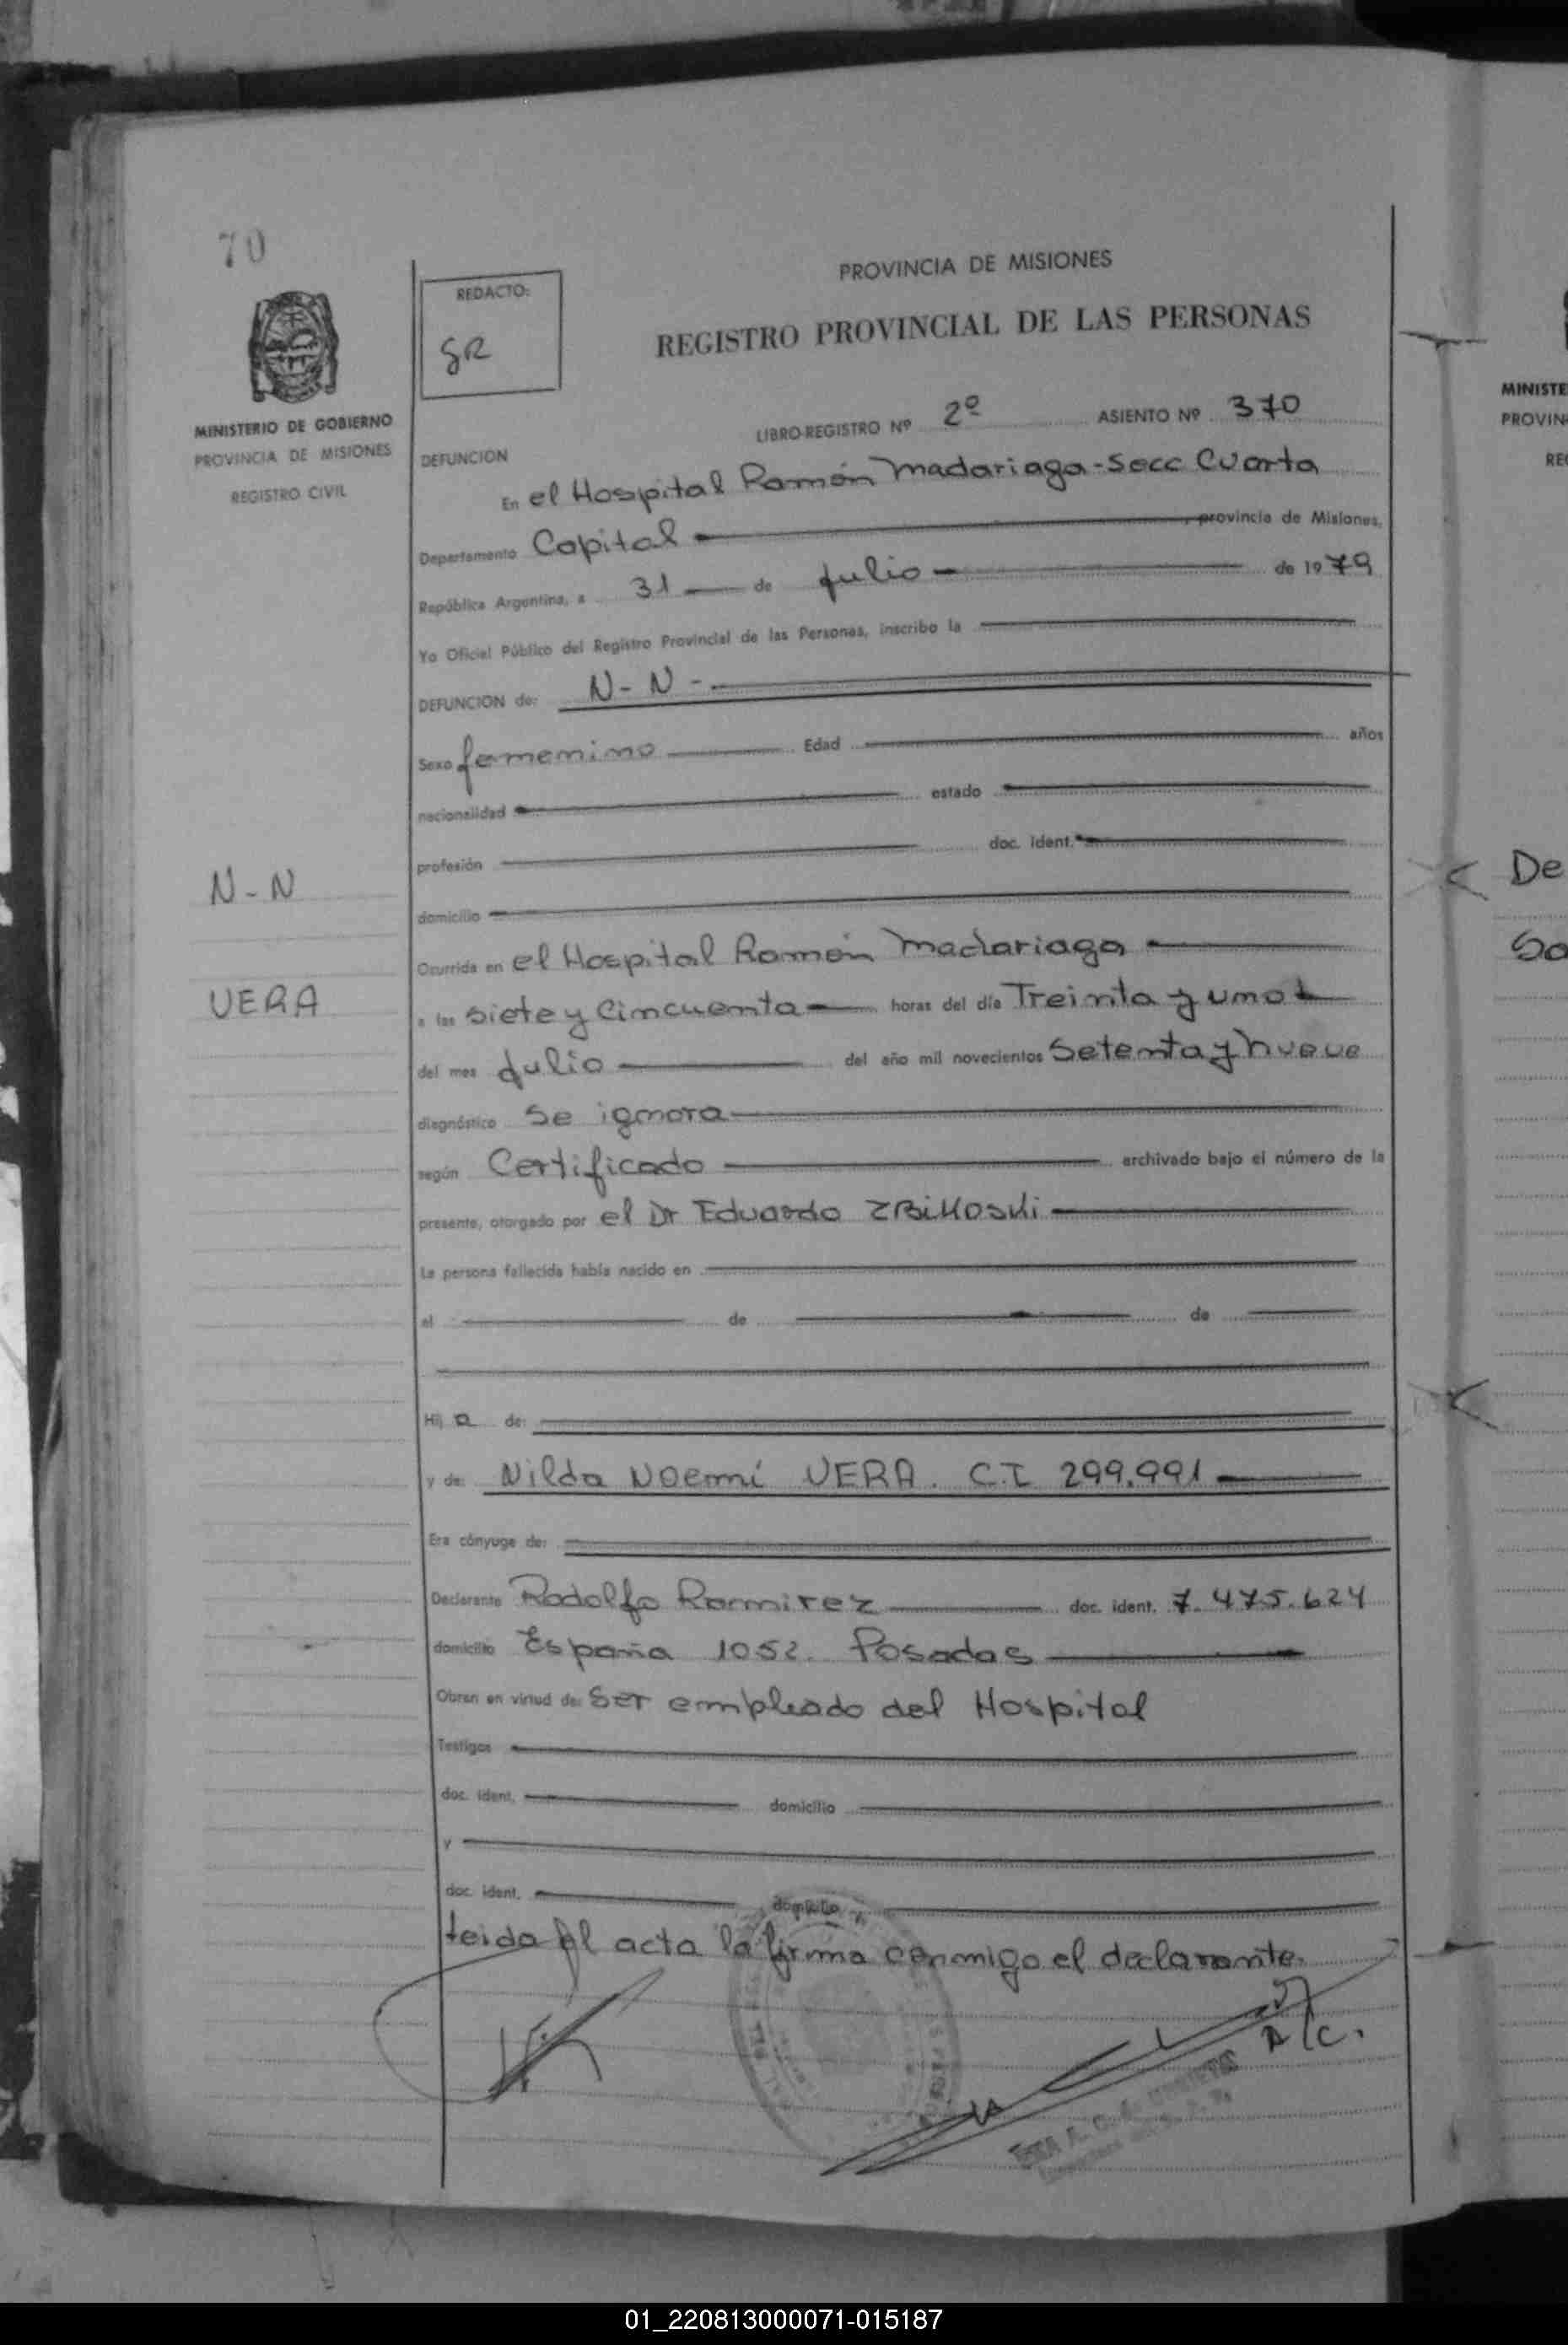 70
PROVINCIA DE MISIONES
REDACTO:
REGISTRO PROVINCIAL DE LAS PERSONAS
MINISTERIO DE GOBIERNO
PROVINCIA DE MISIONES
REGISTRO CIVIL
LIBRO-REGISTRO Nº 2º ASIENTO Nº 370
DEFUNCION
En el Hospital Ramón Madariaga - Secc Cuarta
Departamento Capital , provincia de Misiones,
República Argentina, a 31 de Julio de 1979
Yo Oficial Público del Registro Provincial de las Personas, inscribo la
DEFUNCION de: N - N -
Sexo femenino Edad años
nacionalidad estado
profesión doc. ident.
N - N
domicilio
Ocurrida en el Hospital Ramón Madariaga
VERA
a las Siete y Cincuenta horas del día Treinta y uno
del mes Julio del año mil novecientos Setenta y nueve
diagnóstico Se ignora
según Certificado archivado bajo el número de la
presente, otorgado por el Dr Eduardo ZBiKoski
La persona fallecida había nacido en
el de de
Hij a de:
y de: Nilda Noemí VERA. C.I 299.991
Era cónyuge de:
Declarante Rodolfo Ramirez doc. ident. 7.475.624
domicilio España 1052. Posadas
Obran en virtud de: Ser empleado del Hospital
Testigos
doc. ident. domicilio
y
doc. ident. domicilio
Leida el acta la firma conmigo el declarante.
A/C.
MINISTE
PROVIN
RE
De
So
01_220813000071-015187